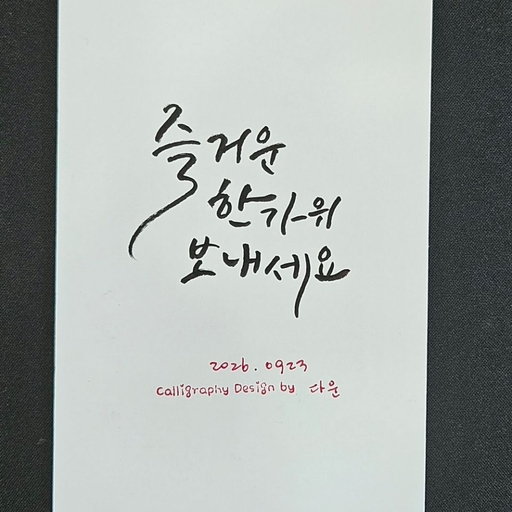 즐거운
한가위
보내세요
2026.0923
Calligraphy Design by 다운